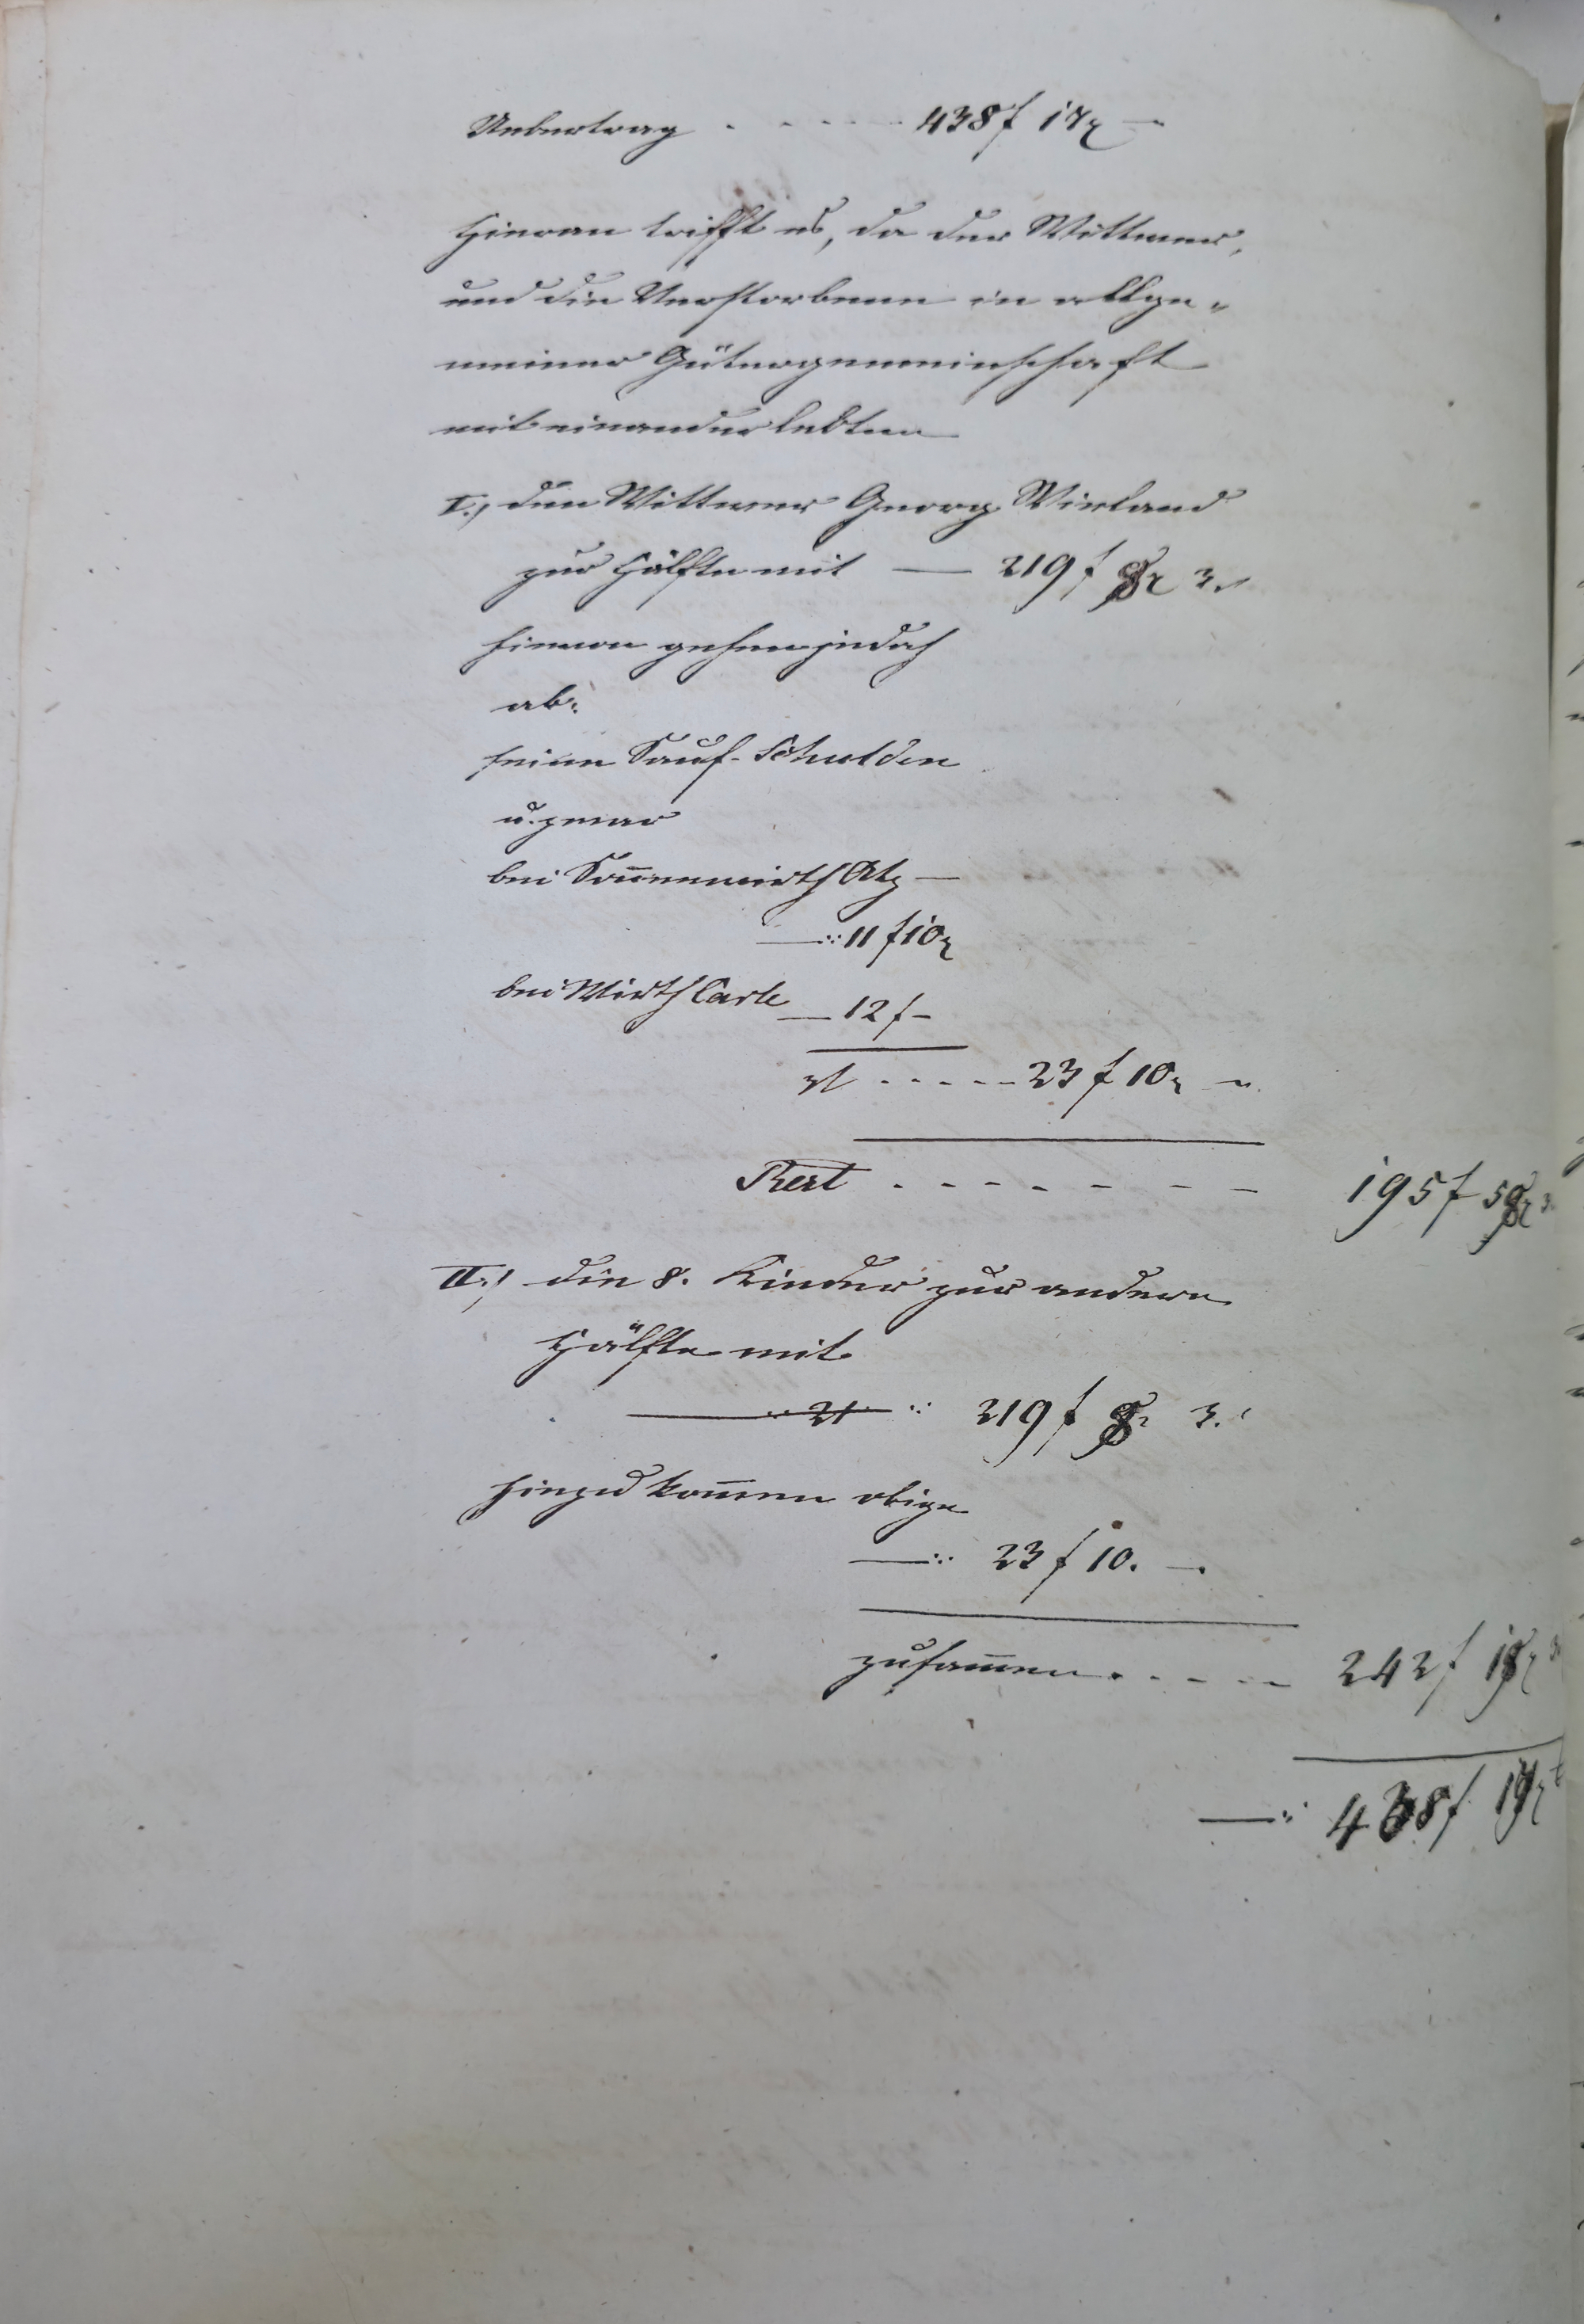 Uebertrag . - - - - 438 f 17 x —
Hieran trifft es, da der Wittwer,
und die Verstorbene in allge-
meiner Gütergemeinschaft
mit einander lebten
I., den Wittwer Georg Wieland
zur Hälfte mit — 219 f 8 x 3.
hievon gehen jedoch
ab:
seine Sauf-Schulden
u. zwar
bei Soñenwirth Atz —
—:: 11 f 10 x
bei Wirth Carle — 12 f –
. - - - - 23 f 10 x "
Rest . - - - - - - 195 f 58 x 3
II., die 8. Kinder zur andern
Hälfte mit
—:: 21 :: 219 f 8 x 3.
hinzu kom̄en obige
—:: 23 f 10. —.
zusam̄en . - - - - 242 f 18 x 3
—:: 438 f 17 x